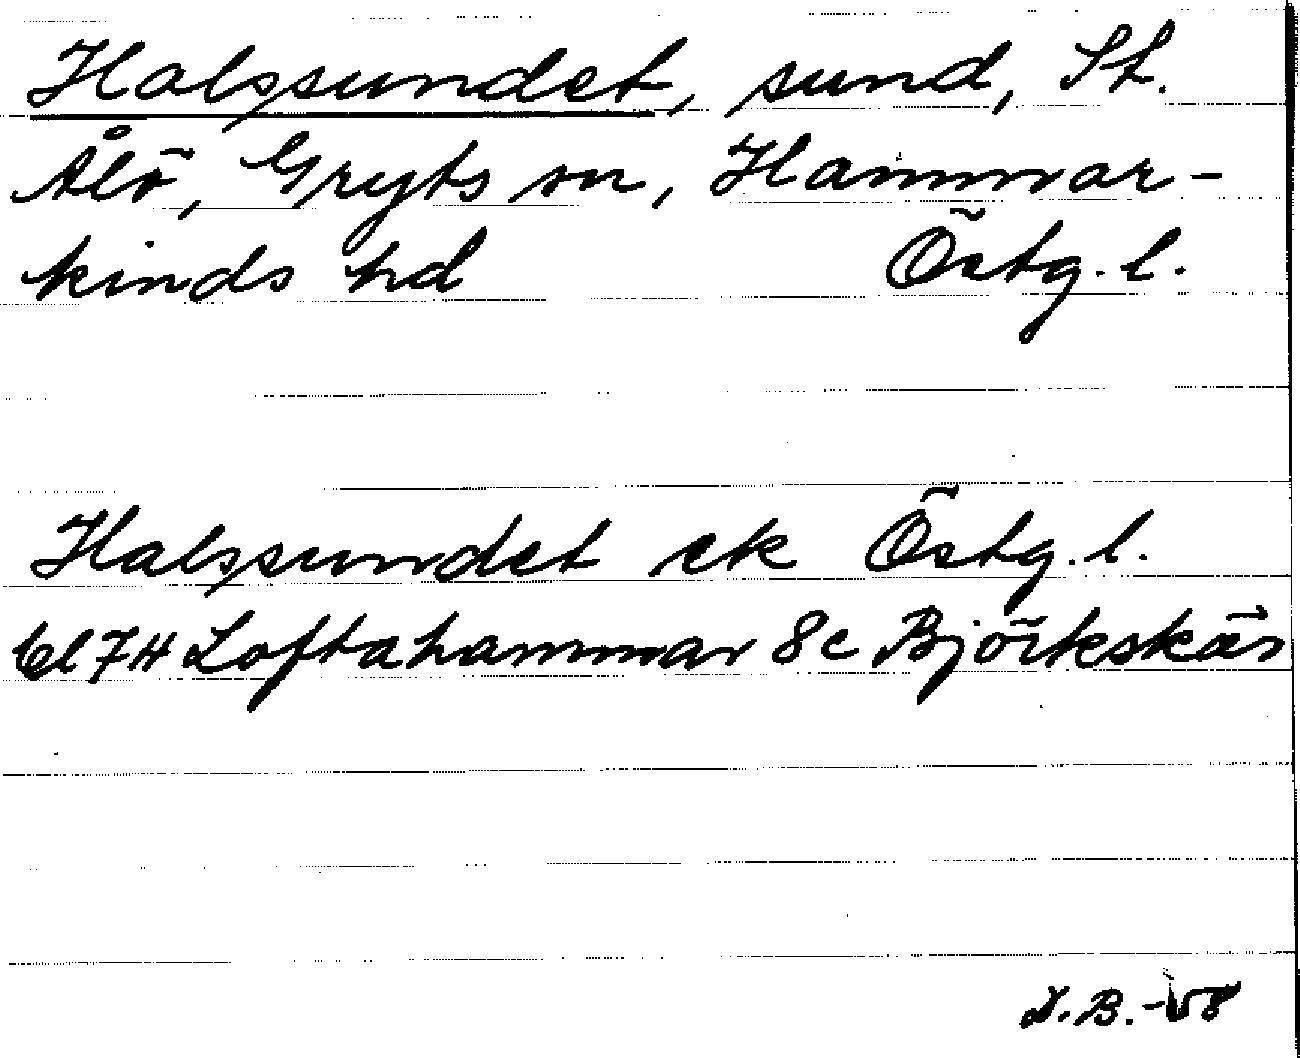 Halssundet, sund, St.
Ålö, Gryts sn, Hammar-
kinds hd Östg. l.
Halssundet ek Östg. l.
bl 7H Loftahammar 8c Björkskär